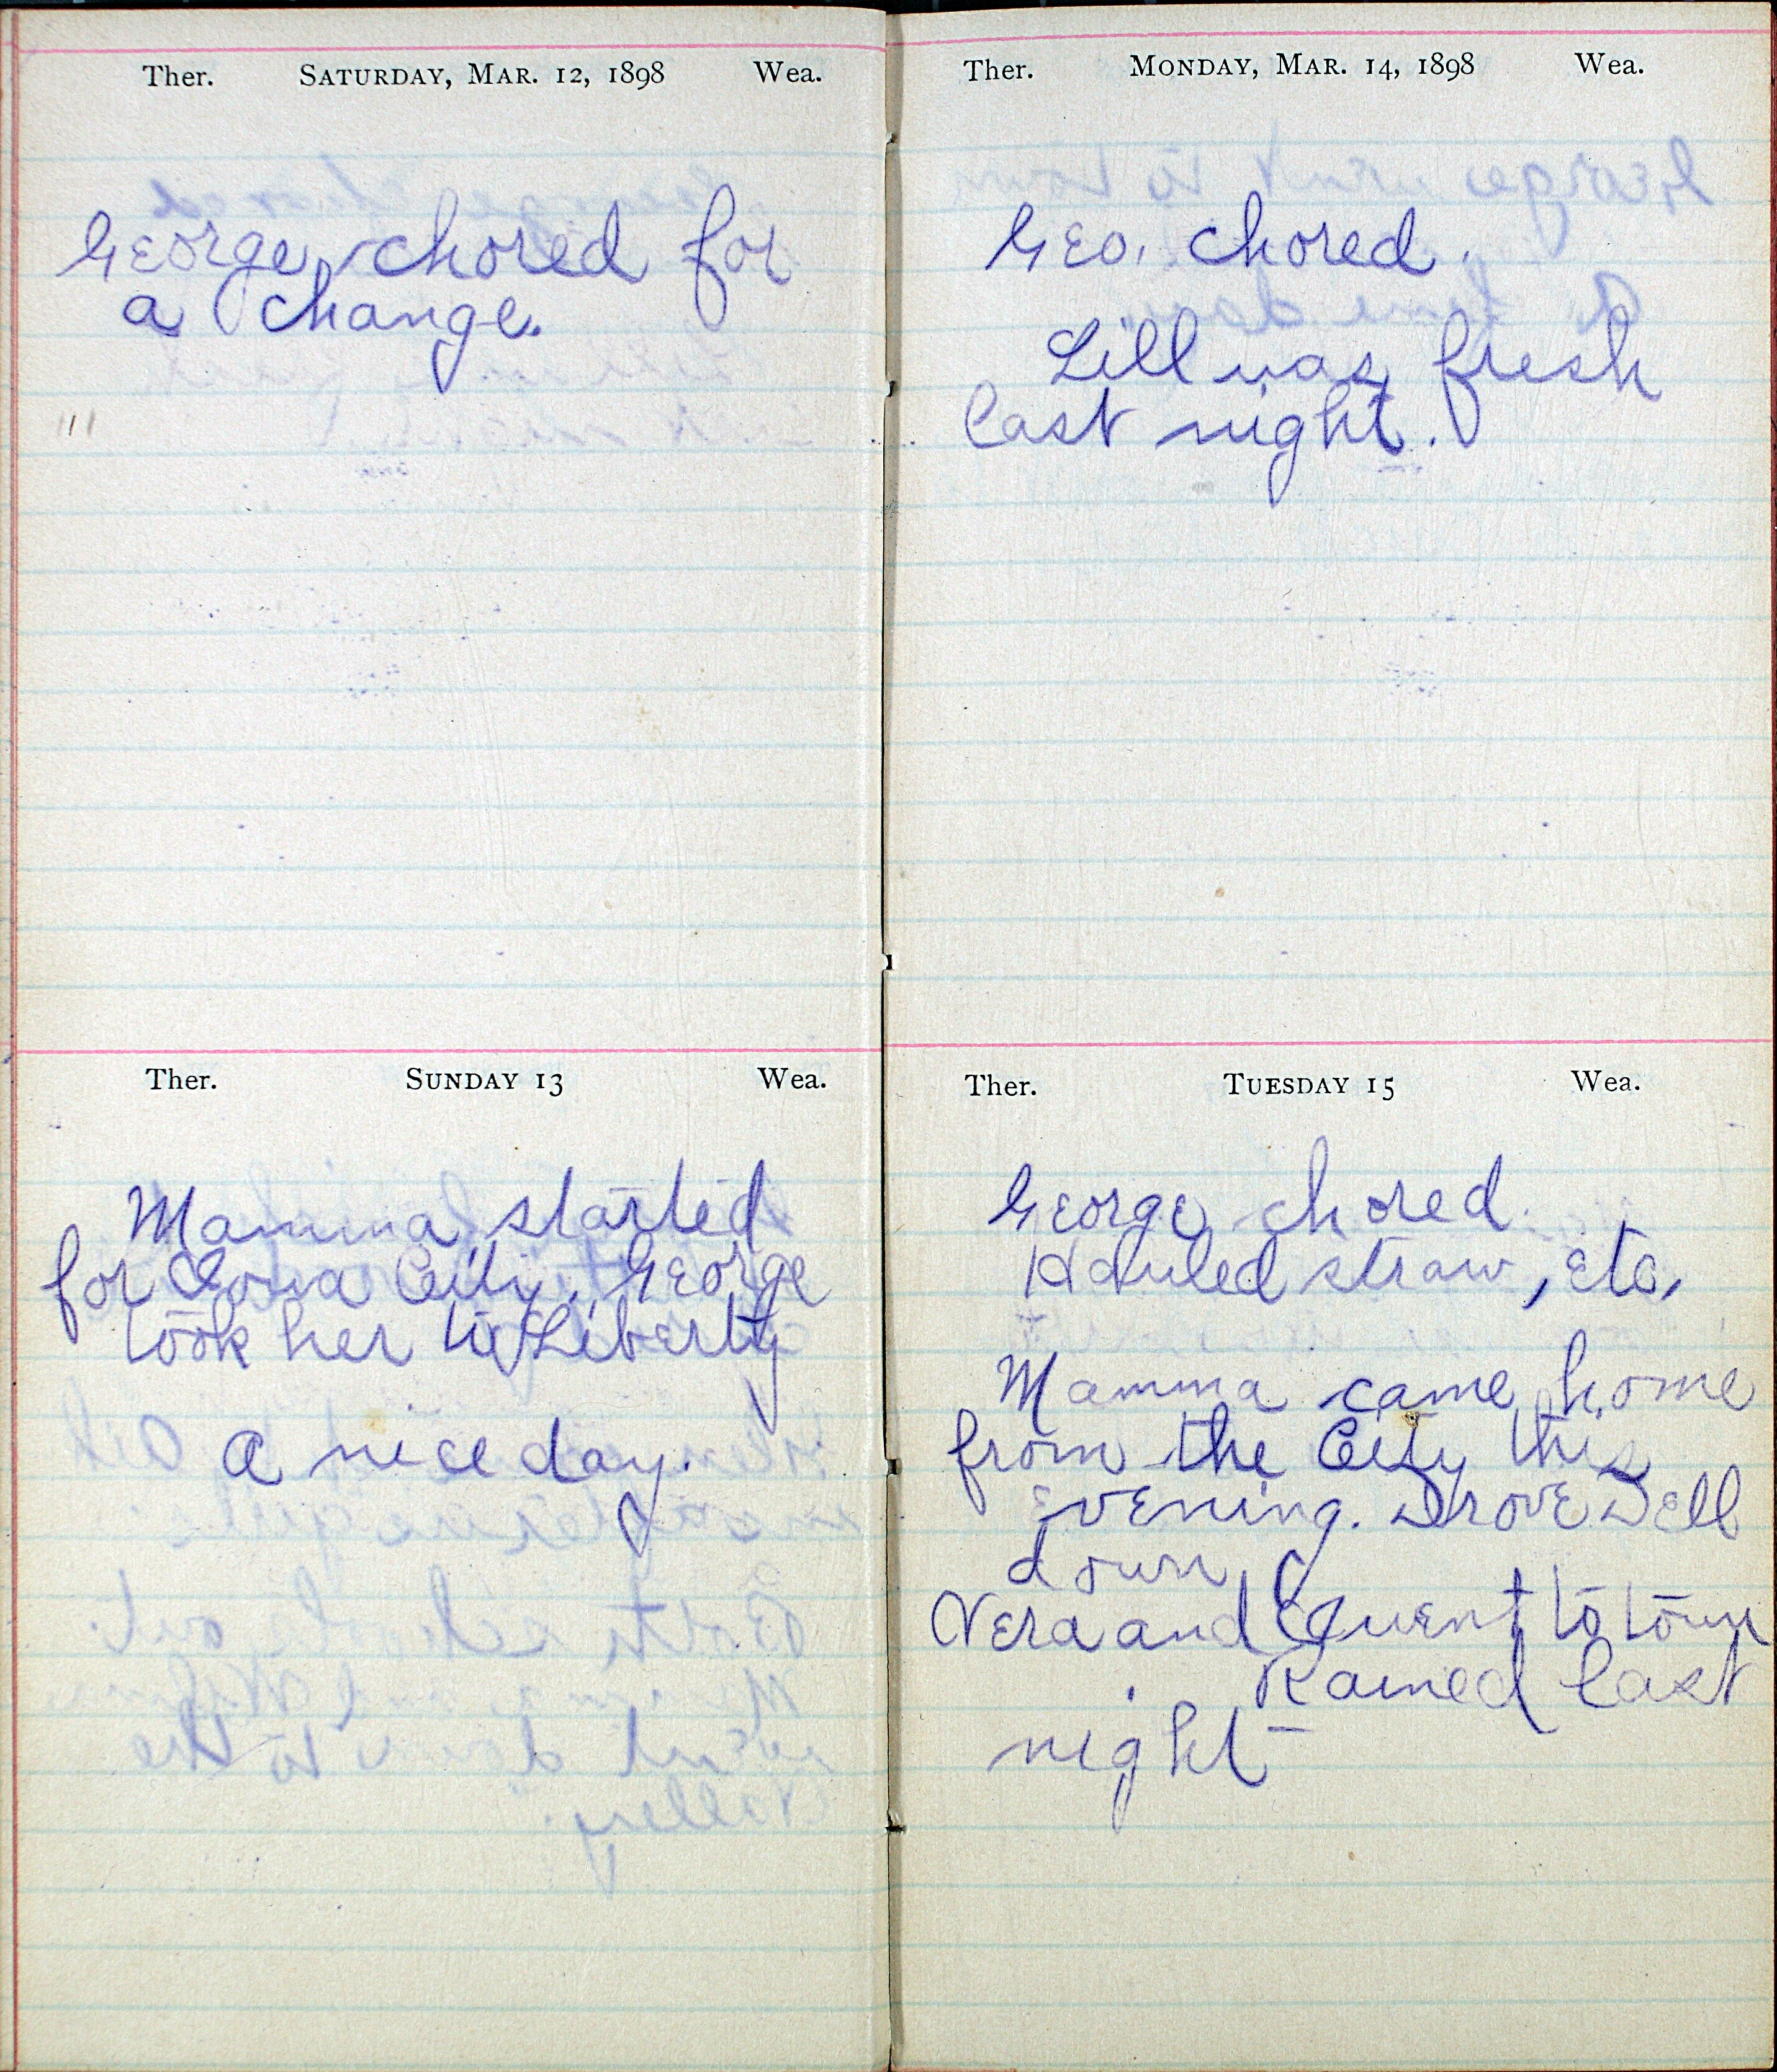 Ther. SATURDAY, MAR. 12, 1898 Wea.
George chored for
a change.
Ther. SUNDAY 13 Wea.
Mamma started
for Iowa City. George
took her to Liberty
A nice day.
Ther. MONDAY, MAR. 14, 1898 Wea.
Geo. chored.
Lill was fresh
last night.
Ther. TUESDAY 15 Wea.
George chored.
Hauled straw, etc.
Mamma came home
from the City this
evening. Drove Dell
down.
Vera and I went to town
Rained last
night